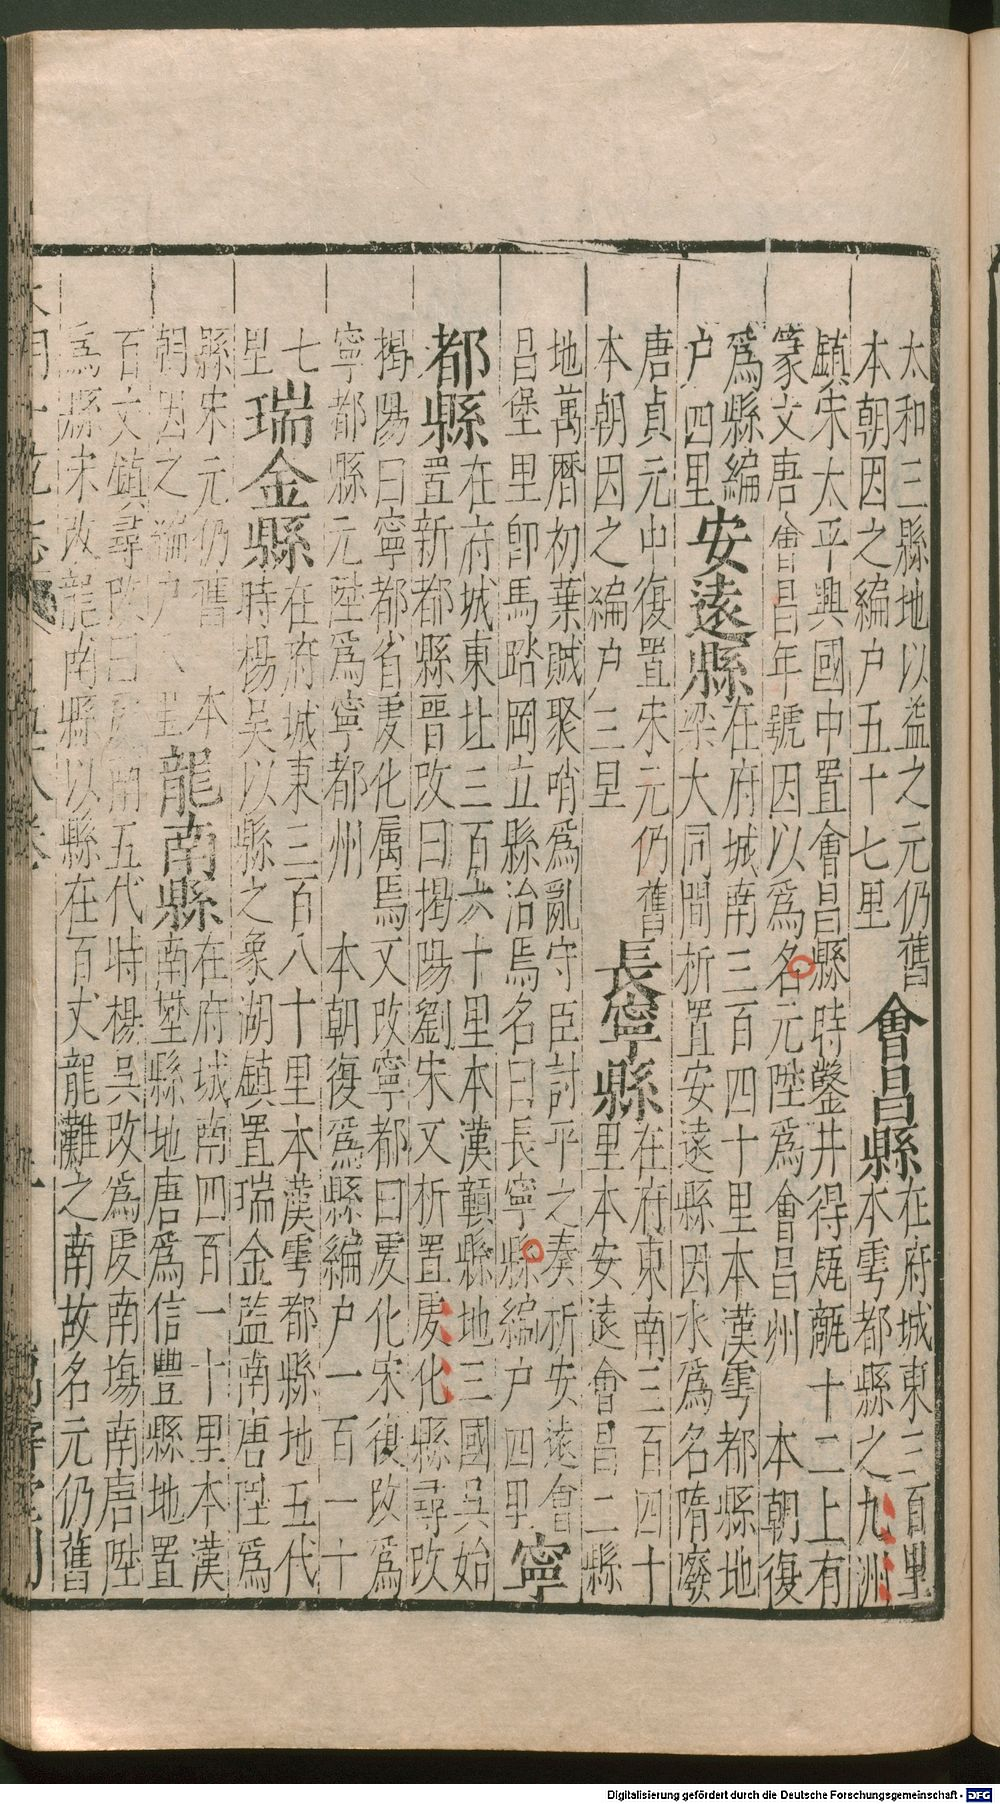 太和三縣地以益之元仍舊
本朝因之編户五十七里
會昌縣
在府城東三百里
本雩都縣之九洲
鎮宋太平興國中置會昌縣時鑿井得瓴甋十二上有
篆文唐會昌年號因以爲名元陞爲會昌州 本朝復
爲縣編
户四里
安遠縣
在府城南三百四十里本漢雩都縣地
梁大同間析置安遠縣因水爲名隋廢
唐貞元中復置宋元仍舊
本朝因之編户三里
長寧縣
在府東南三百四十
里本安遠會昌二縣
地萬曆初葉賊聚哨爲亂守臣討平之奏析安遠會
昌堡里卽馬踏岡立縣治焉名曰長寧縣編户四里
寧
都縣
在府城東北三百六十里本漢贑縣地三國吳始
置新都縣晉改曰揭陽劉宋又析置虔化縣尋改
揭陽曰寧都省虔化属焉又改寧都曰虔化宋復改爲
寧都縣元陞爲寧都州 本朝復爲縣編户一百一十
七
里
瑞金縣
在府城東三百八十里本漢雩都縣地五代
時楊吳以縣之象湖鎮置瑞金監南唐陞爲
縣宋元仍舊 本
朝因之編户八里
龍南縣
在府城南四百一十里本漢
南壄縣地唐爲信豐縣地置
百丈鎮尋改曰虔南五代時楊吳改爲虔南場南唐陞
爲縣宋改龍南縣以縣在百丈龍灘之南故名元仍舊
Digitalisierung gefördert durch die Deutsche Forschungsgemeinschaft - DFG